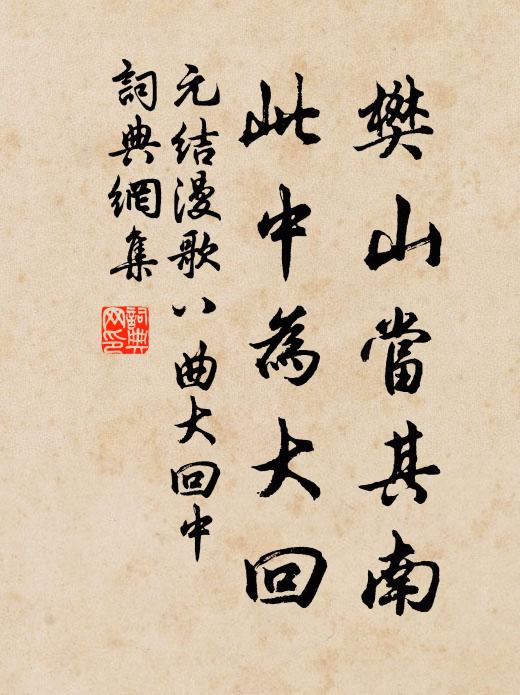 樊山當其南
此中為大回
元结漫歌八曲大回中
詞典網集
詞典網印